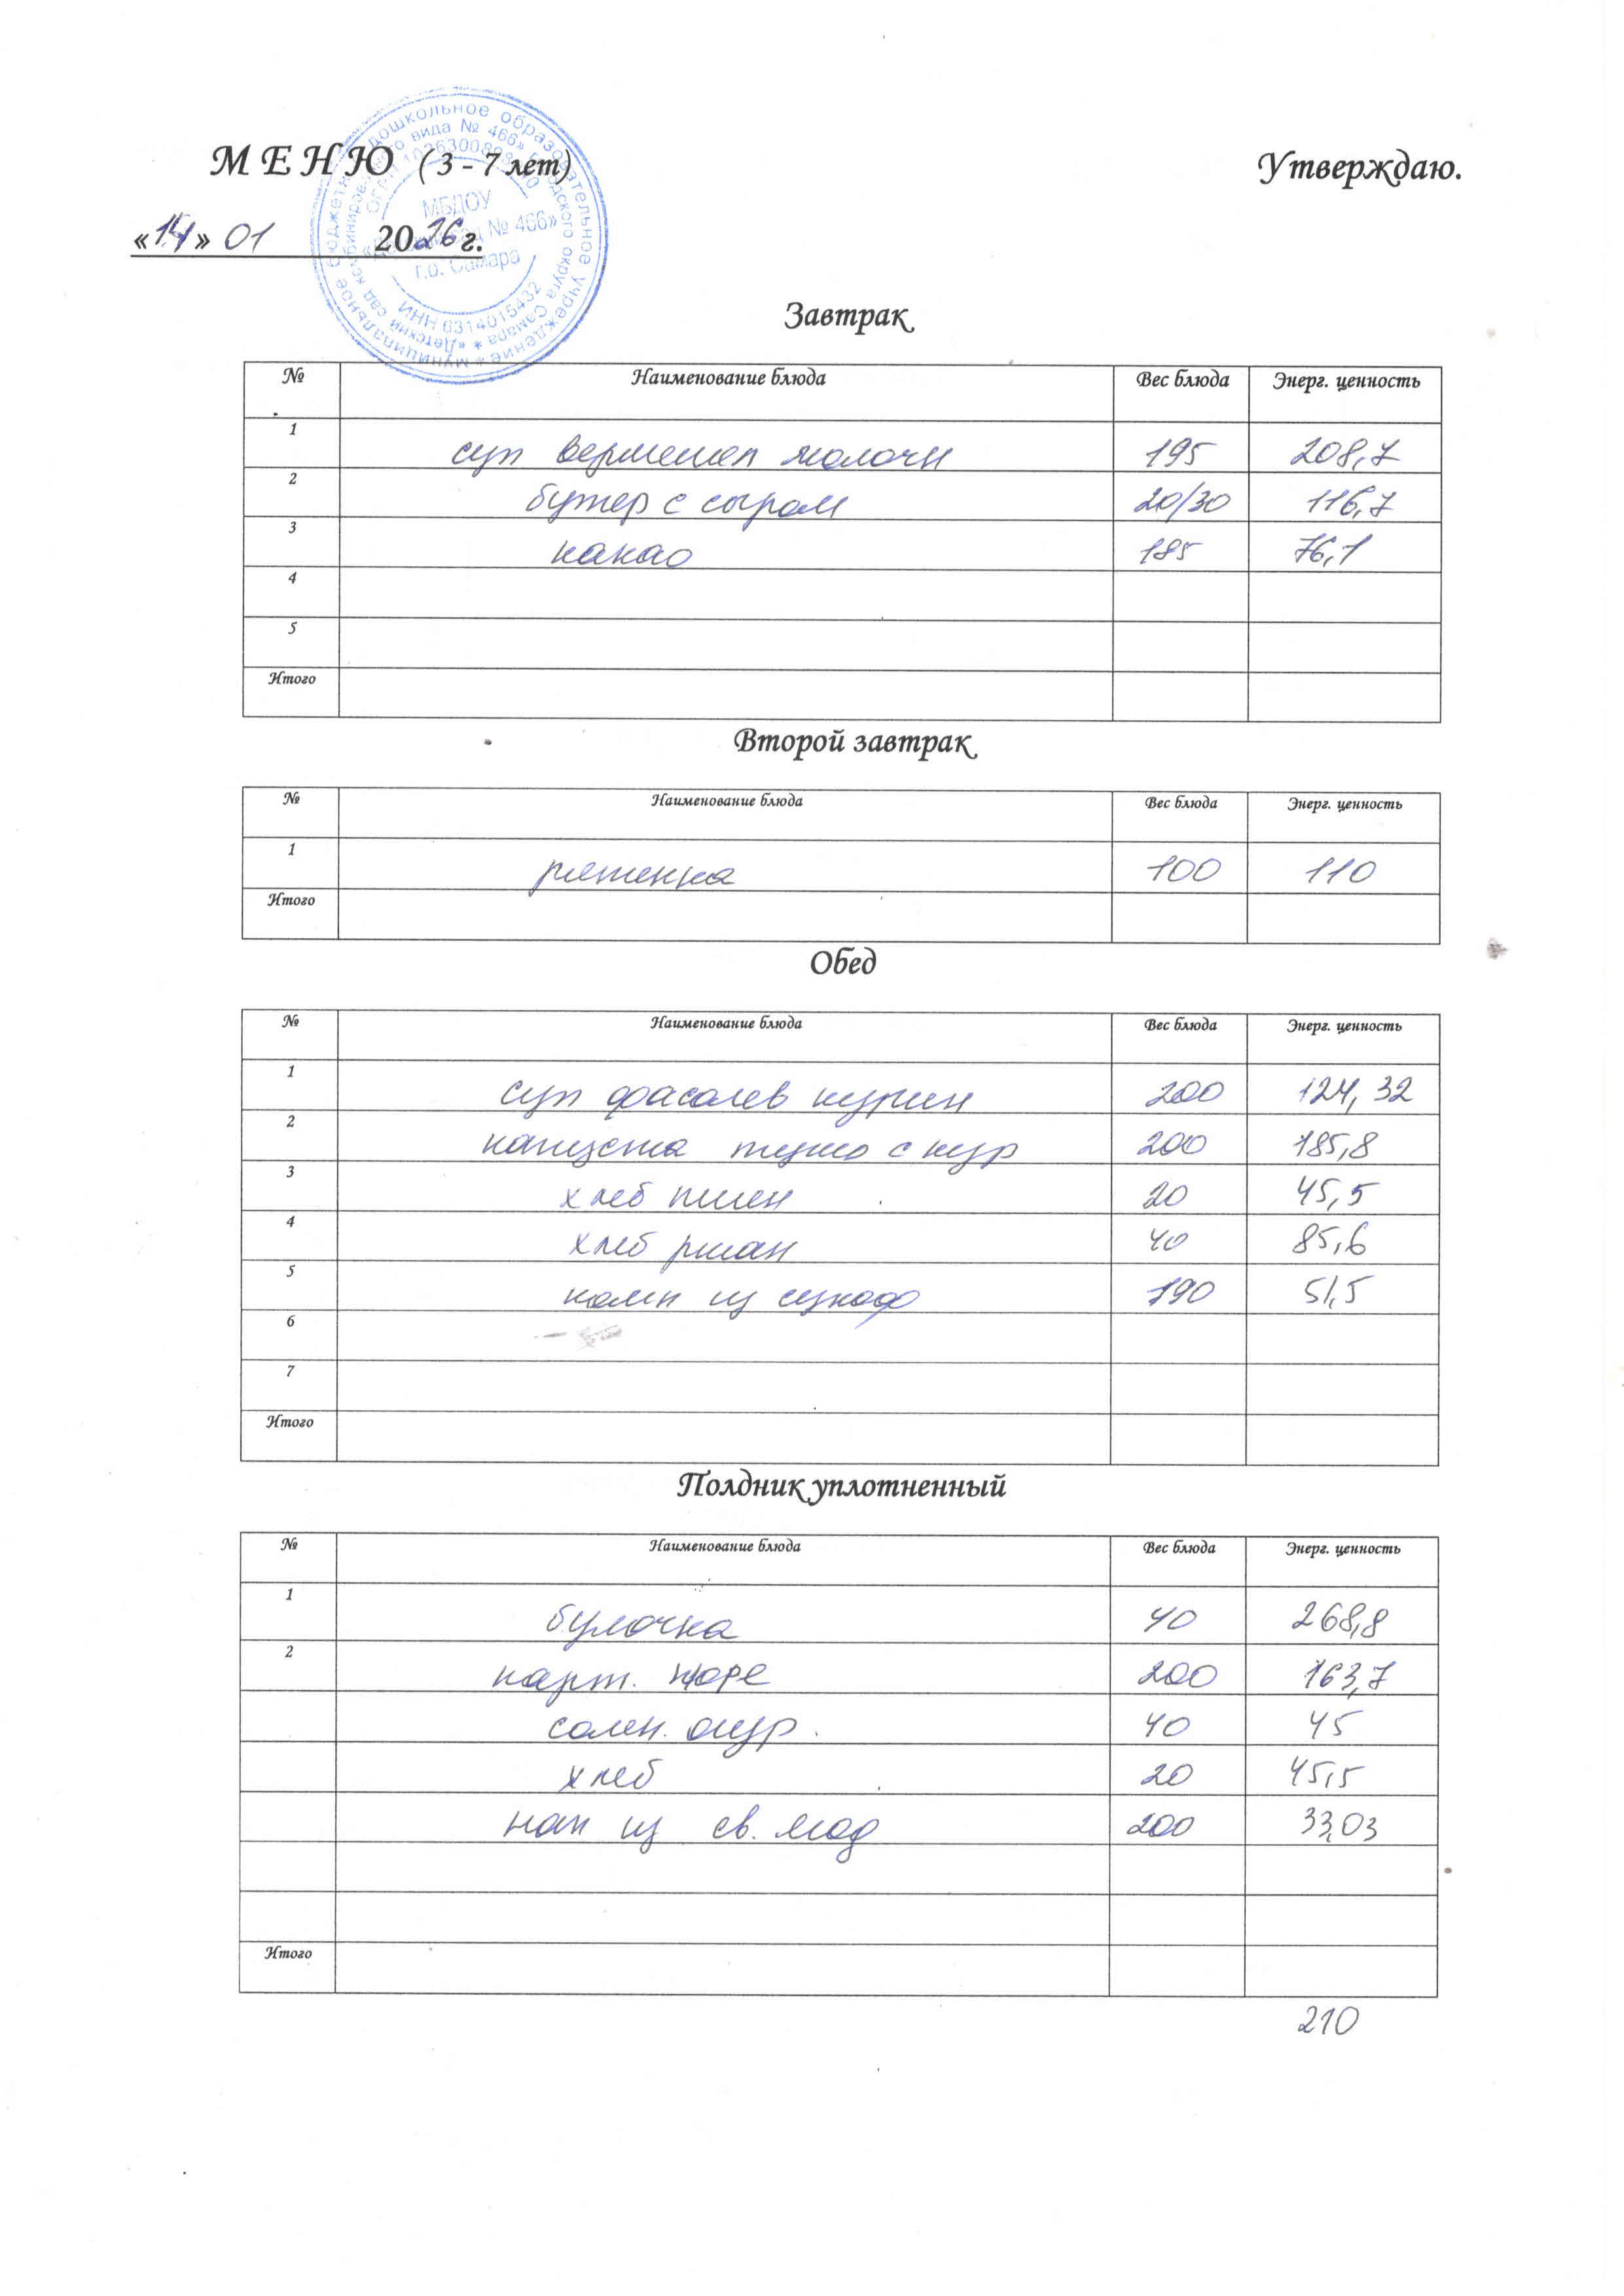 МЕНЮ (3 - 7 лет) Утверждаю.
«14» 01 2026 г.
МБДОУ
№ 466»
г.о. Самара
ИНН 6314015432
Завтрак
№ Наименование блюда Вес блюда Энерг. ценность
1 суп вермешел молочн 195 208,7
2 бутер с сыром 20/30 116,7
3 какао 185 76,1
4
5
Итого
Второй завтрак
№ Наименование блюда Вес блюда Энерг. ценность
1 ряженка 100 110
Итого
Обед
№ Наименование блюда Вес блюда Энерг. ценность
1 суп фасолев курин 200 124,32
2 капуста туш с кур 200 185,8
3 хлеб пшен 20 45,5
4 хлеб ржан 40 85,6
5 комп из сухоф 190 51,5
6
7
Итого
Полдник уплотненный
№ Наименование блюда Вес блюда Энерг. ценность
1 булочка 40 268,8
2 карт. пюре 200 163,7
солен. огур. 40 45
хлеб 20 45,5
нап из св. ягод 200 33,03
Итого
210